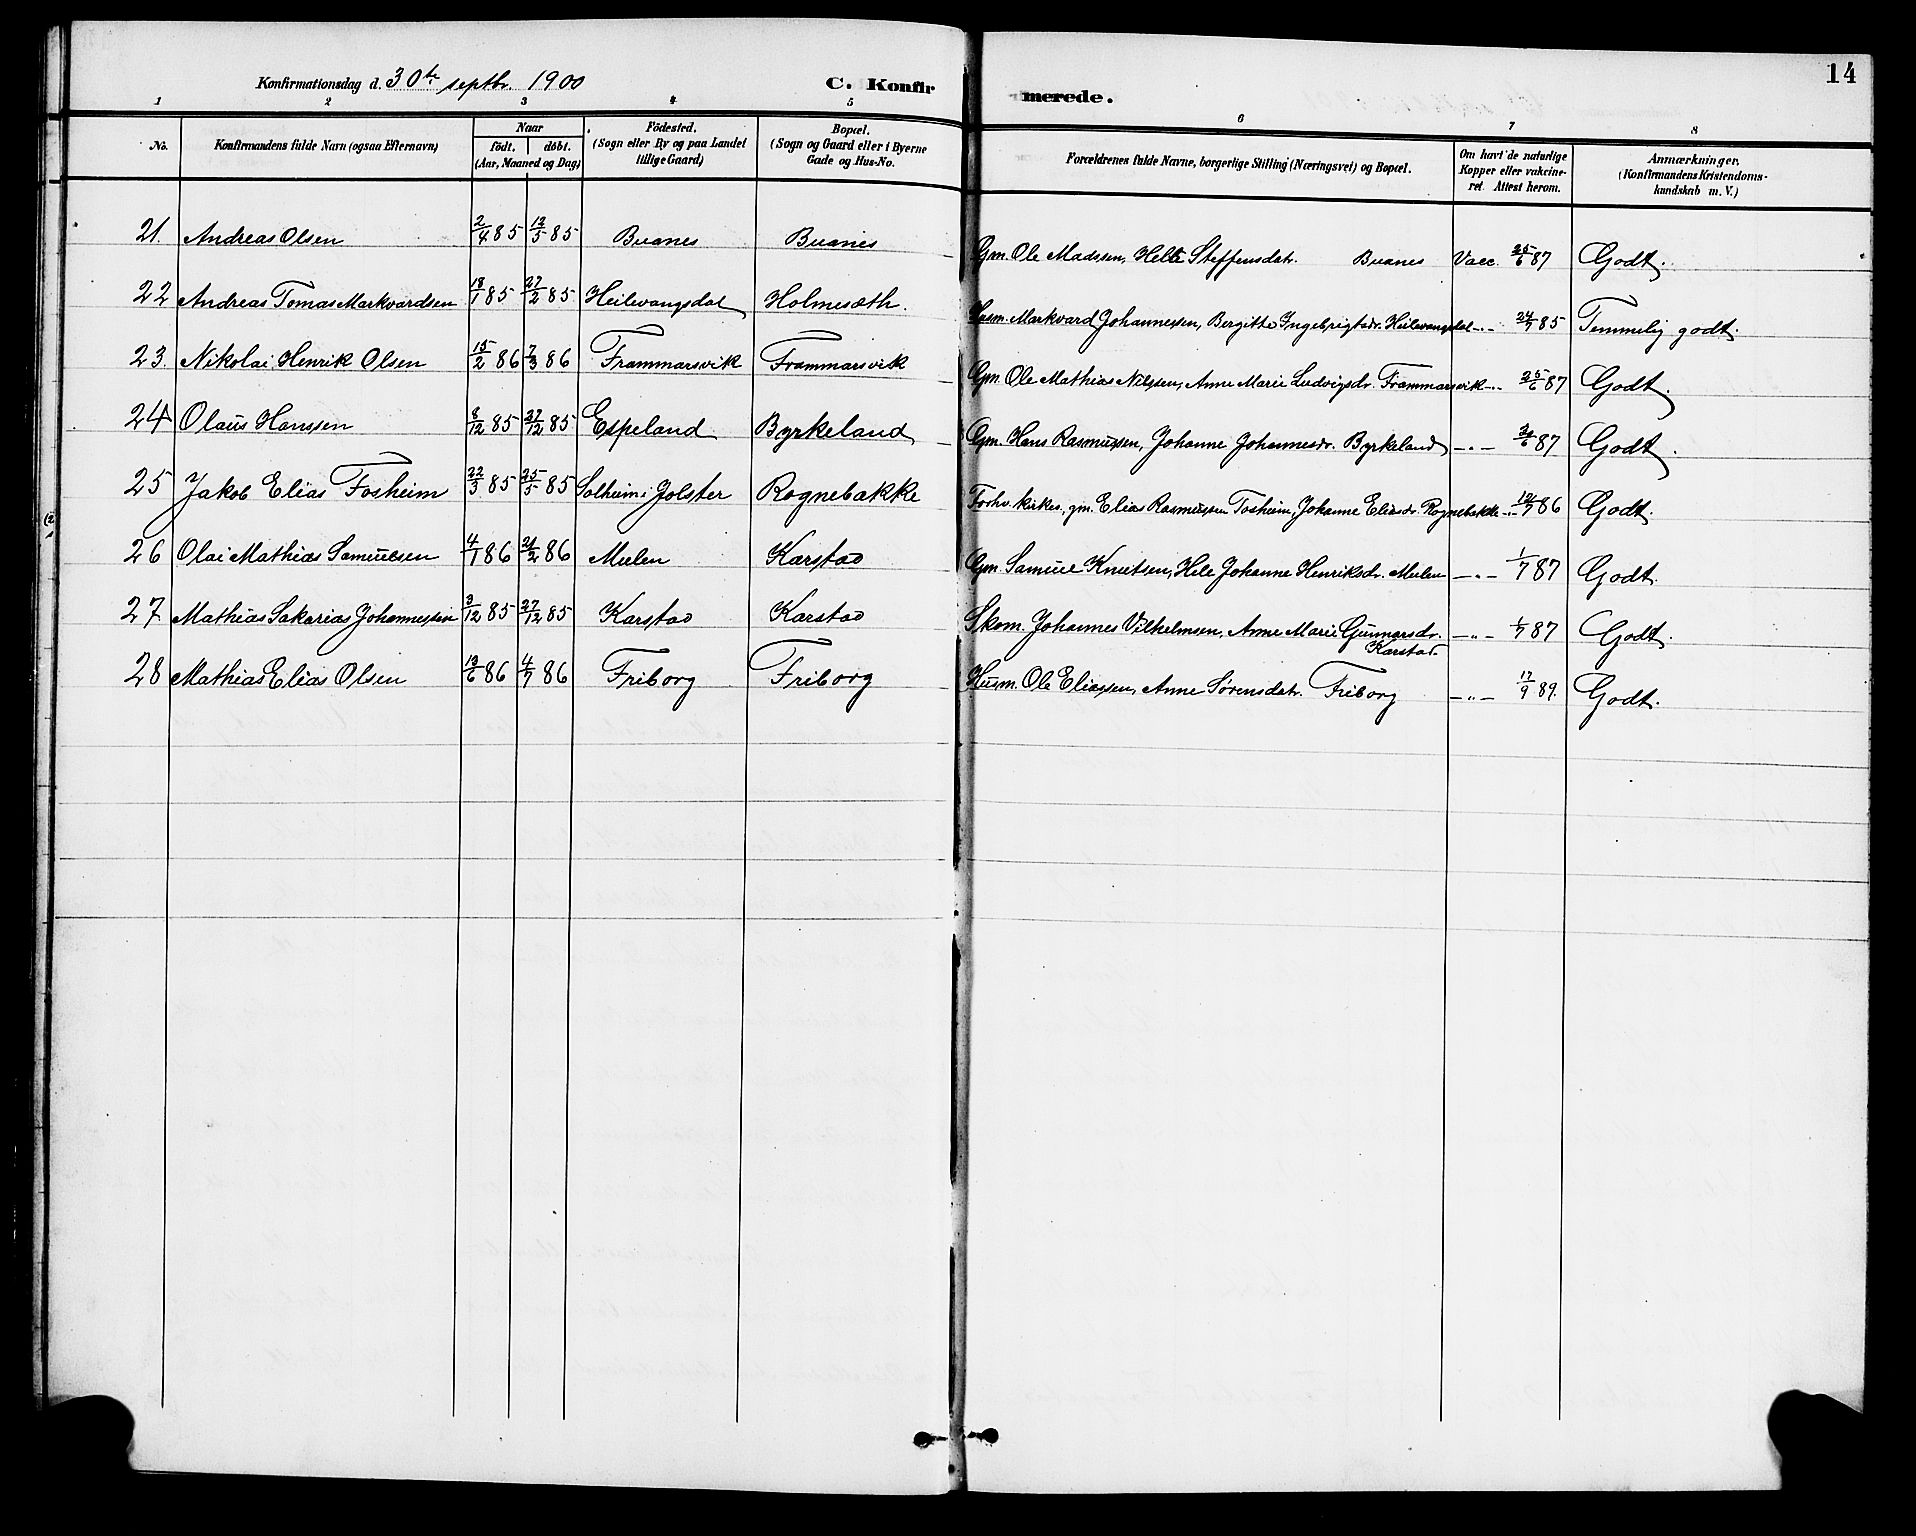 14
Konfirmationsdag d. 30te septbr. 1900 C. Konfirmerede.
1 2 3 4 5 6 7 8
No. Konfirmandens fulde Navn (ogsaa Efternavn) Naar Födested. Bopæl. Forældrenes fulde Navne, borgerlige Stilling (Næringsvei) og Bopæl. Om havt de naturlige Anmærkninger.
födt. döbt. (Sogn eller By og paa Landet (Sogn og Gaard eller i Byerne Kopper eller vakcine- (Konfirmandens Kristendoms-
(Aar, Maaned og Dag) tillige Gaard) Gade og Hus-No. ret. Attest herom. kundskab m. V.)
21. Andreas Olsen 2/4 85 12/5 85 Buanes Buanes Gm. Ole Madssen, Steffensdatr. Buanes Vacc. 25/6 87 Godt.
22 Andreas Tomas Markvardsen 18/1 85 27/2 85 Heilevangsdal Holmesæth. Husm. Markvard Johannessen, Bergitte Ingebrigtsdr. Heilevangsdal -"- 24/7 85 Temmelig godt.
23. Nikolai Henrik Olsen 15/2 86 7/3 86 Frammarsvik Frammarsvik Gm. Ole Mathias Nilssen, Anne Marie Ludvigsdr. Frammarsvik -"- 25/6 87 Godt.
24 Olaus Hanssen 8/12 85 27/12 85 Espeland Byrkeland Gm. Hans Rasmussen, Johanne Johannesdr. Byrkeland -"- 87 Godt.
25 Jakob Elias Fosheim 22/3 85 25/5 85 Solheim i Jolster Rognebakke Forhv. kirkes., gm. Elias Rasmussen Fosheim, Johanne Eliasdr. Rognebakke -"- 86 Godt.
26 Olai Mathias Samuelsen 4/1 86 21/2 86 Mulen Karstad Gm. Samuel Knutsen, Hele Johanne Henriksdr. Mulen -"- 1/7 87 Godt.
27 Mathias Sakarias Johannessen 3/12 85 27/12 85 Karstad Karstad Skom. Johannes Vilhelmsen, Anne Marie Gunnarsdr. -"- 1/7 87 Godt.
Karstad.
28 Mathias Elias Olsen 13/6 86 4/7 86 Friborg Friborg Husm. Ole Eliassen, Anne Sørensdatr. Friborg -"- 17/9 89. Godt.